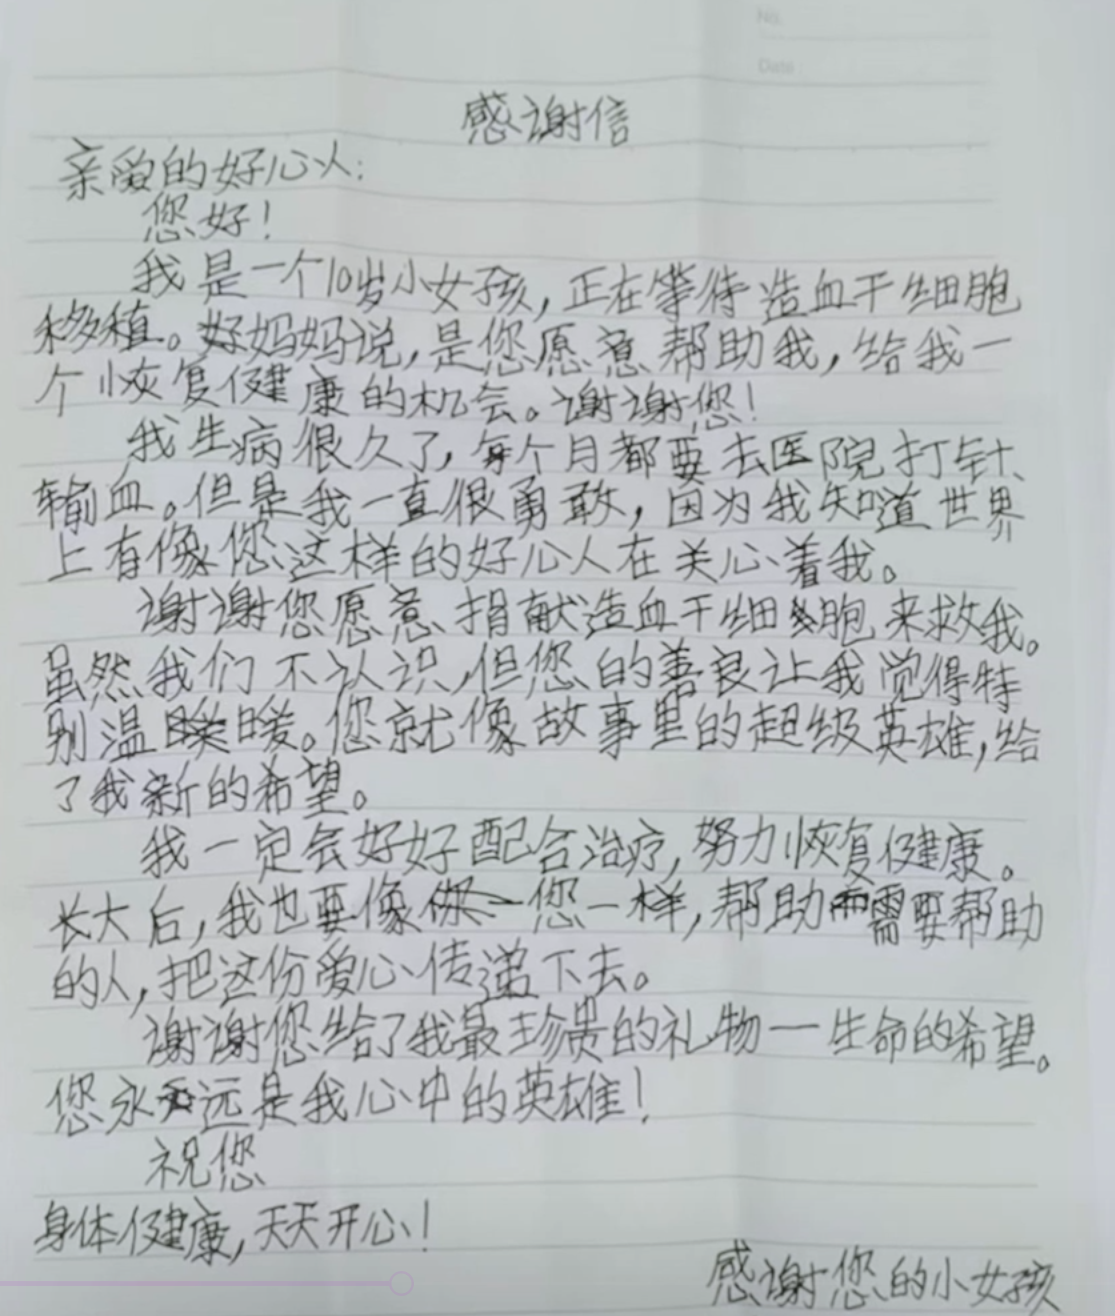 No.
Date
感谢信
亲爱的好心人:
您好!
我是一个10岁小女孩,正在等待造血干细胞
移植。好妈妈说,是您愿意帮助我,给我一
个恢复健康的机会。谢谢您!
我生病很久了,每个月都要去医院打针、
输血。但是我一直很勇敢,因为我知道世界
上有像您这样的好心人在关心着我。
谢谢您愿意捐献造血干细胞来救我。
虽然我们不认识,但您的善良让我觉得特
别温暖。您就像故事里的超级英雄,给
了我新的希望。
我一定会好好配合治疗,努力恢复健康。
长大后,我也要像您一样,帮助需要帮助
的人,把这份爱心传递下去。
谢谢您给了我最珍贵的礼物一生命的希望。
您永远是我心中的英雄!
祝您
身体健康,天天开心!
感谢您的小女孩